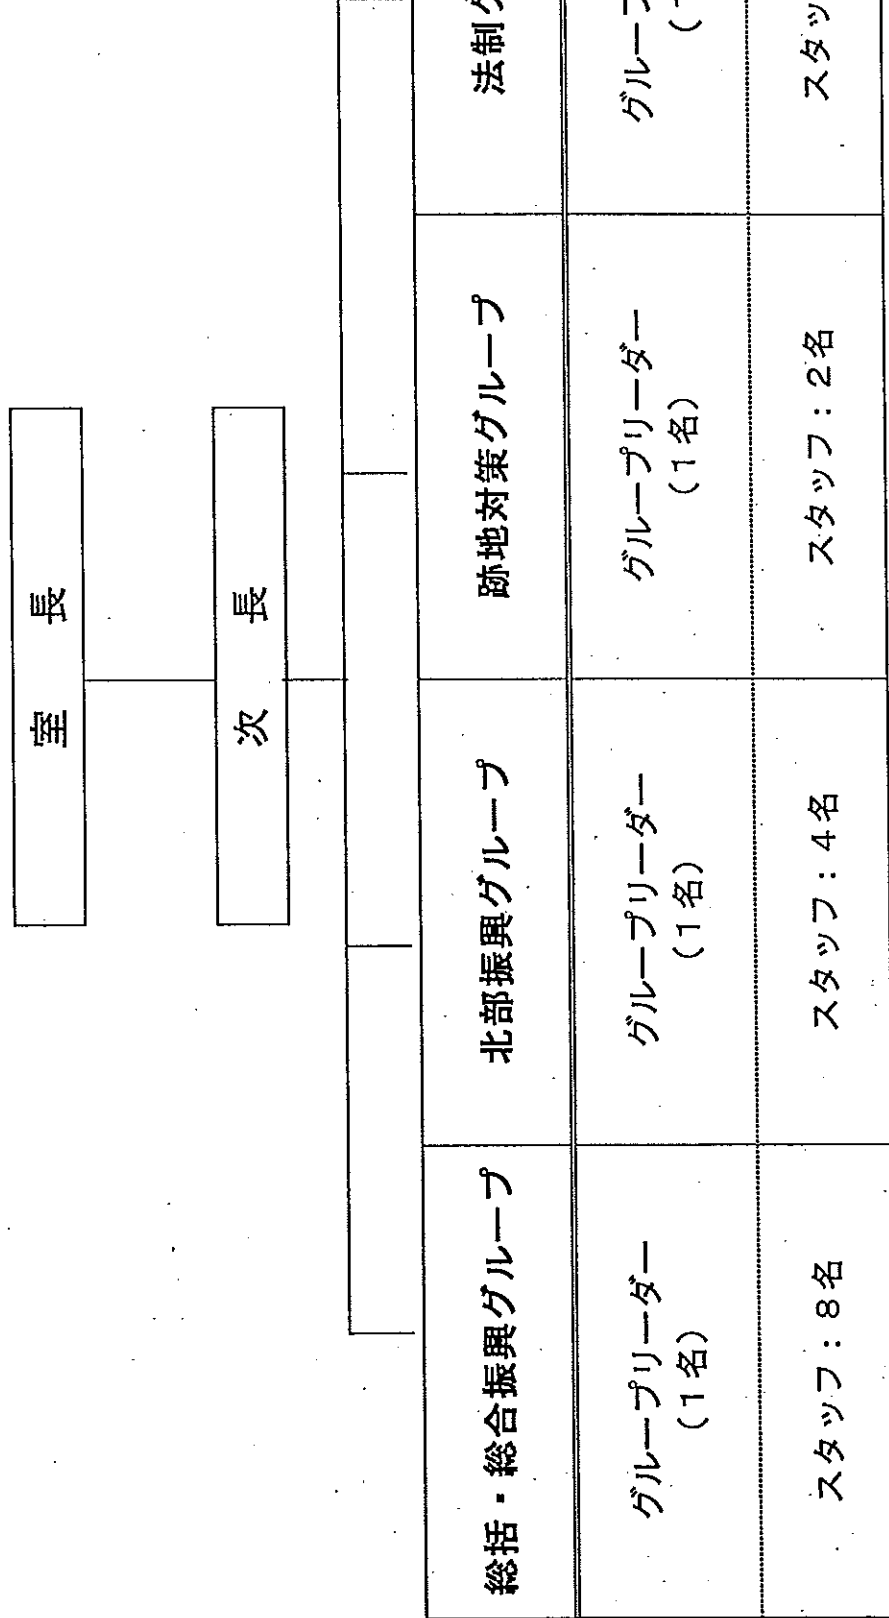 室　長
次　長
総括・総合振興グループ
北部振興グループ
跡地対策グループ
法制
グループリーダー
（１名）
グループリーダー
（１名）
グループリーダー
（１名）
グループ
スタッフ：８名
スタッフ：４名
スタッフ：２名
スタッ